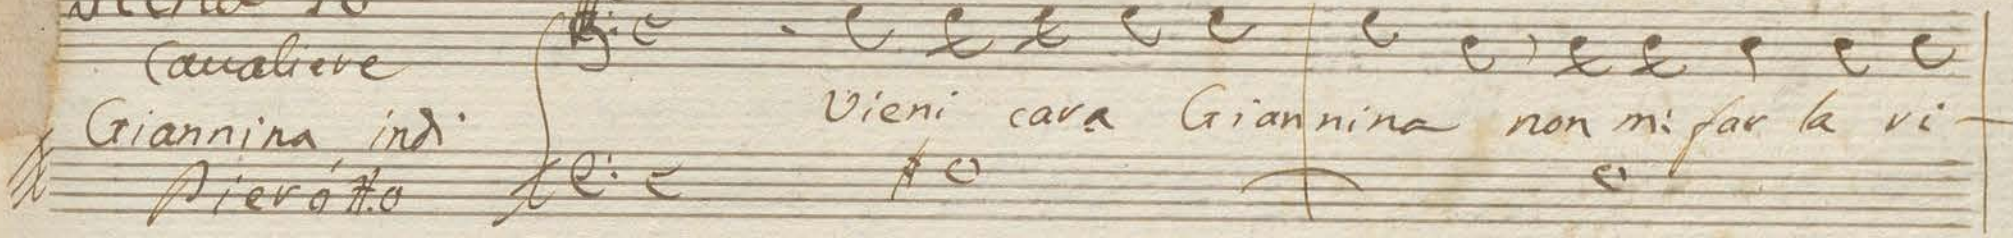 Cavaliere
Giannina indi
Pierotto
Vieni cara Giannina non mi far la vi-